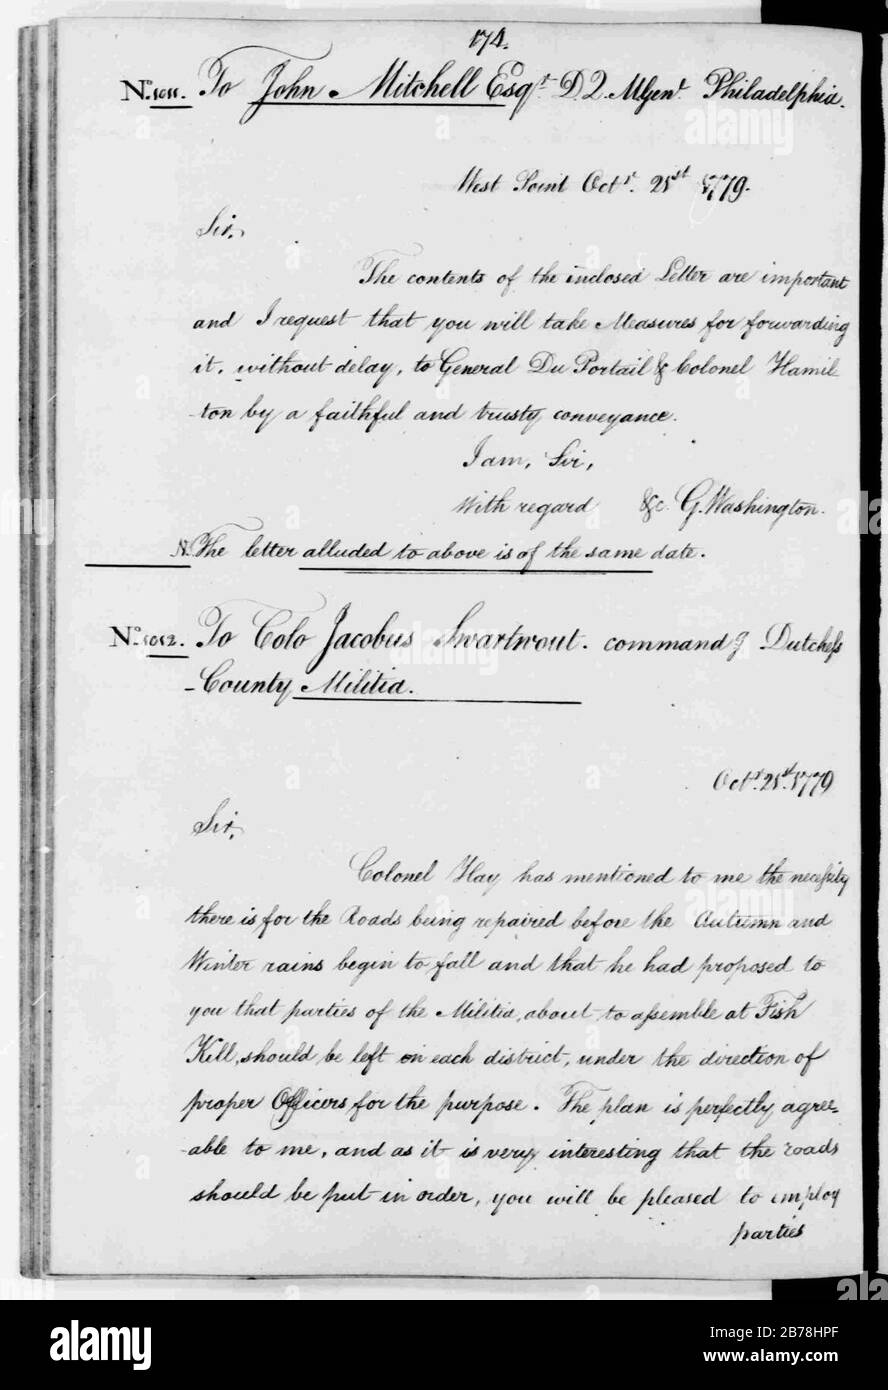 174.
No. 1011. To John Mitchell Esqr. D. Q. M Genl. Philadelphia.
West Point Octr. 21st 1779.
Sir,
The contents of the inclosed Letter are important
and I request that you will take Measures for forwarding
it, without delay, to General Du Portail & Colonel Hamil-
-ton by a faithful and trusty conveyance.
I am, Sir,
With regard &c. G. Washington.
N. The letter alluded to above is of the same date.
No. 1012. To Colo Jacobus Swartwout. commandg Dutchess
-County Militia.
Octr. 21st. 1779
Sir,
Colonel Hay has mentioned to me the necessity
there is for the Roads being repaired before the Autumn and
Winter rains begin to fall and that he had proposed to
you that parties of the Militia, about to assemble at Fish
Kill, should be left on each district, under the direction of
proper Officers, for the purpose. The plan is perfectly agree-
-able to me, and as it is very interesting that the roads
should be put in order, you will be pleased to employ
parties
alamy
Image ID: 2B78HPF
www.alamy.com